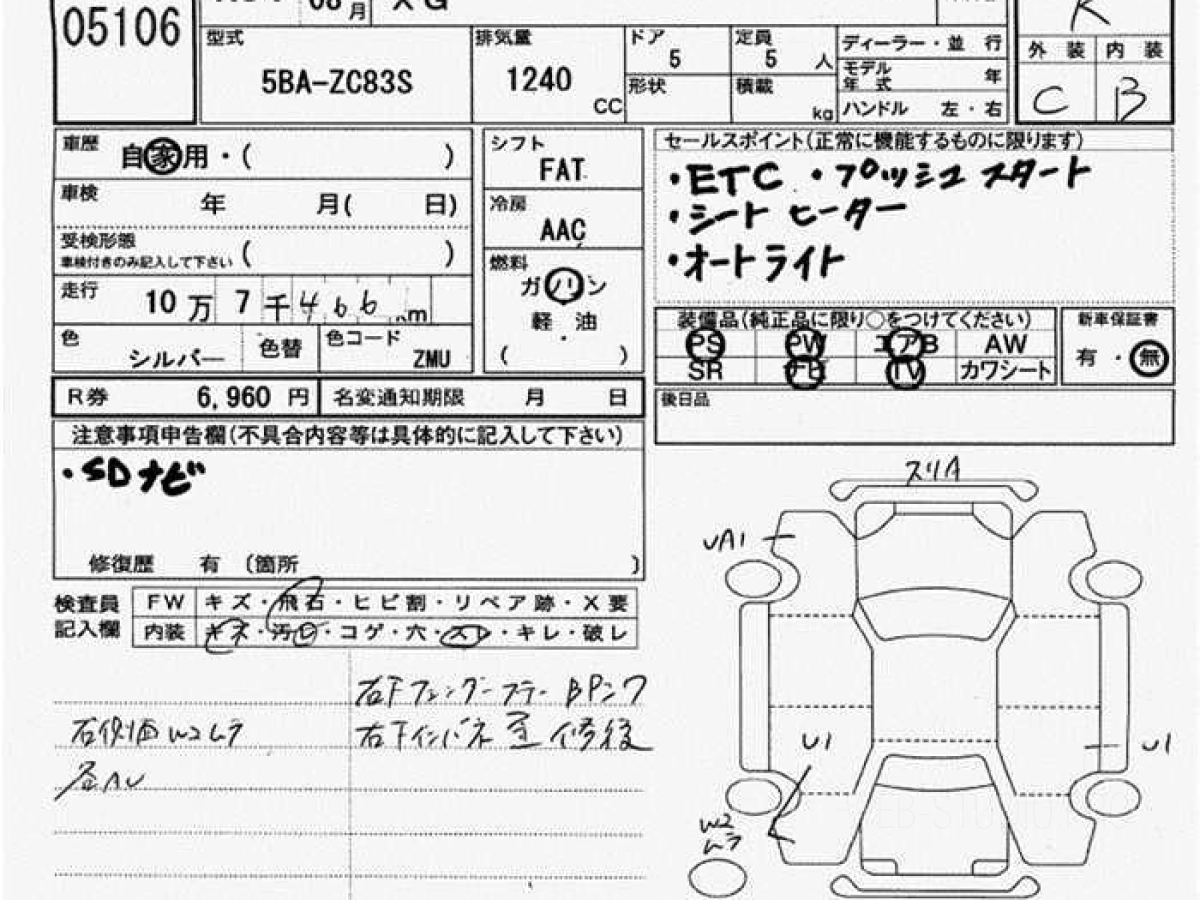 05106
08月
XG
型式
5BA-ZC83S
排気量
1240
CC
ドア
5
定員
5
人
形状
積載
kg
ディーラー・並 行
モデル年 式
年
ハンドル 左・右
R
外 装
内 装
C
B
車歴
自家用・( )
車検
年 月( 日)
受検形態
車検付きのみ記入して下さい ( )
走行
10万7千466km
色
シルバー
色替
色コード
ZMU
シフト
FAT
冷房
AAC
燃料
ガソリン
軽・油
( )
セールスポイント(正常に機能するものに限ります)
・ETC ・プッシュ スタート
・シート ヒーター
・オートライト
装備品(純正品に限り○をつけてください)
PS PW エアB AW
SR ナビ TV カワシート
新車保証書
有・無
R券
6,960 円
名変通知期限 月 日
後日品
注意事項申告欄(不具合内容等は具体的に記入して下さい)
・SDナビ
修復歴 有 〔箇所 〕
検査員
記入欄
FW キズ・飛石・ヒビ割・リペア跡・X要
内装 キズ・汚レ・コゲ・穴・スレ・キレ・破レ
右側面W2ムラ
スリA
UA1
U1
U1
W2
ムラ